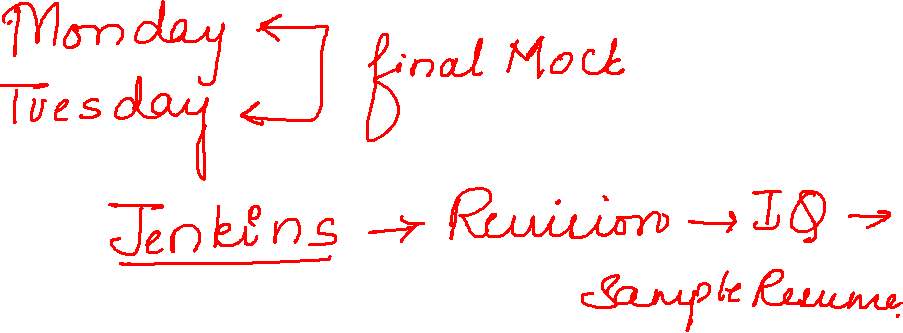 Monday
Tuesday
final Mock
Jenkins → Revision → IQ →
Sample Resume.